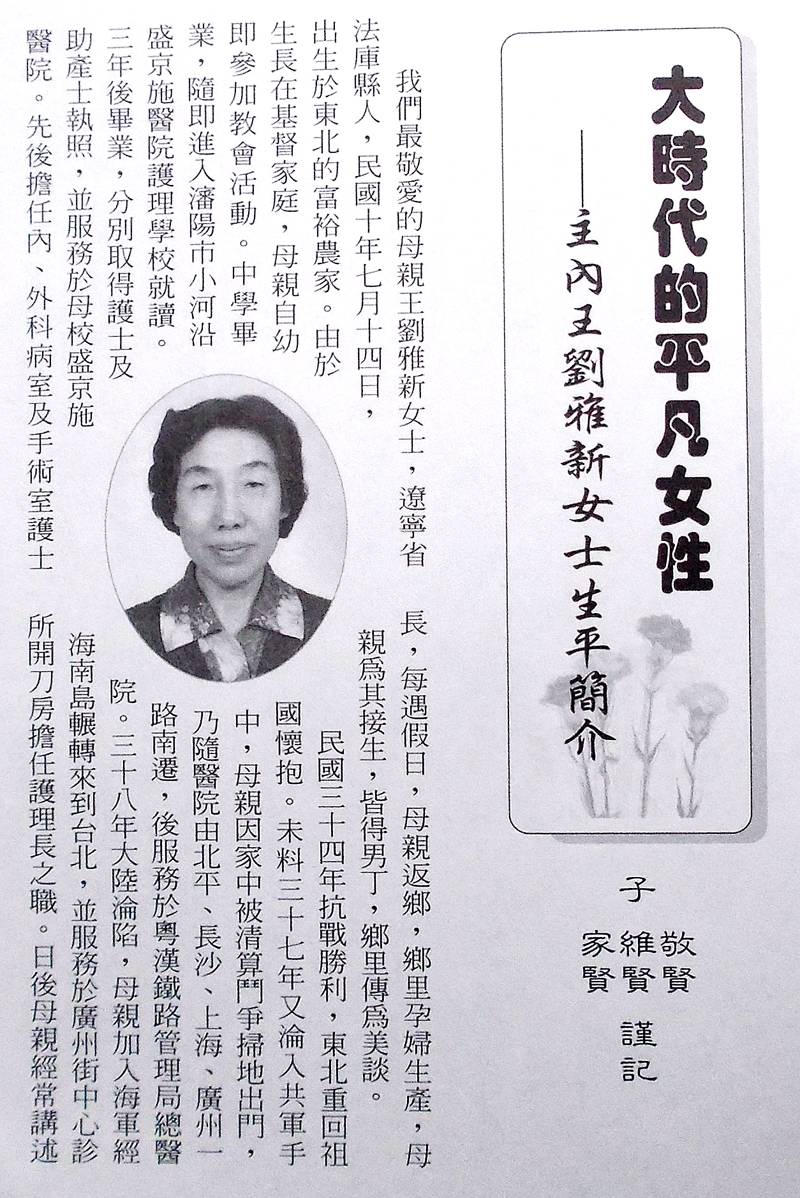 大時代的平凡女性
——主內王劉雅新女士生平簡介
子 敬賢
維賢
家賢 謹記
我們最敬愛的母親王劉雅新女士，遼寧省
法庫縣人，民國十年七月十四日，
出生於東北的富裕農家。由於
生長在基督家庭，母親自幼
即參加教會活動。中學畢
業，隨即進入瀋陽市小河沿
盛京施醫院護理學校就讀。
三年後畢業，分別取得護士及
助產士執照，並服務於母校盛京施
醫院。先後擔任內、外科病室及手術室護士
長，每遇假日，母親返鄉，鄉里孕婦生產，母
親為其接生，皆得男丁，鄉里傳為美談。
民國三十四年抗戰勝利，東北重回祖
國懷抱。未料三十七年又淪入共軍手
中，母親因家中被清算鬥爭掃地出門，
乃隨醫院由北平、長沙、上海、廣州一
路南遷，後服務於粵漢鐵路管理局總醫
院。三十八年大陸淪陷，母親加入海軍經
海南島輾轉來到台北，並服務於廣州街中心診
所開刀房擔任護理長之職。日後母親經常講述